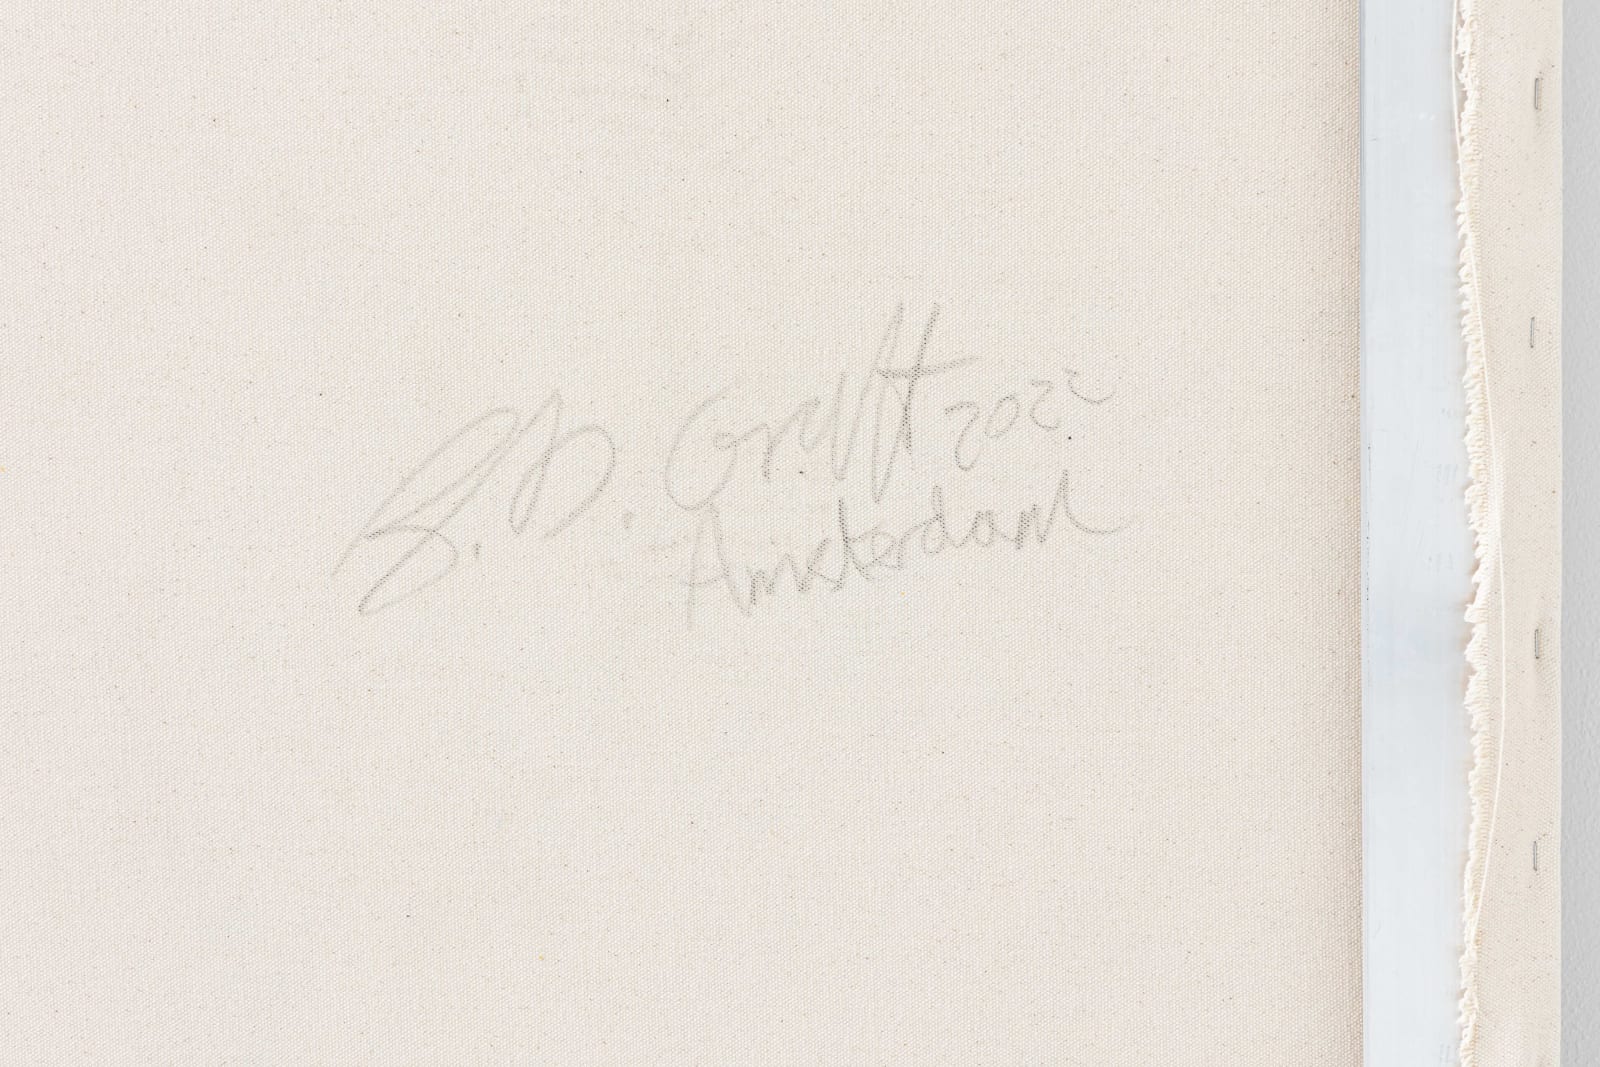 B. D. Graft 2022
Amsterdam